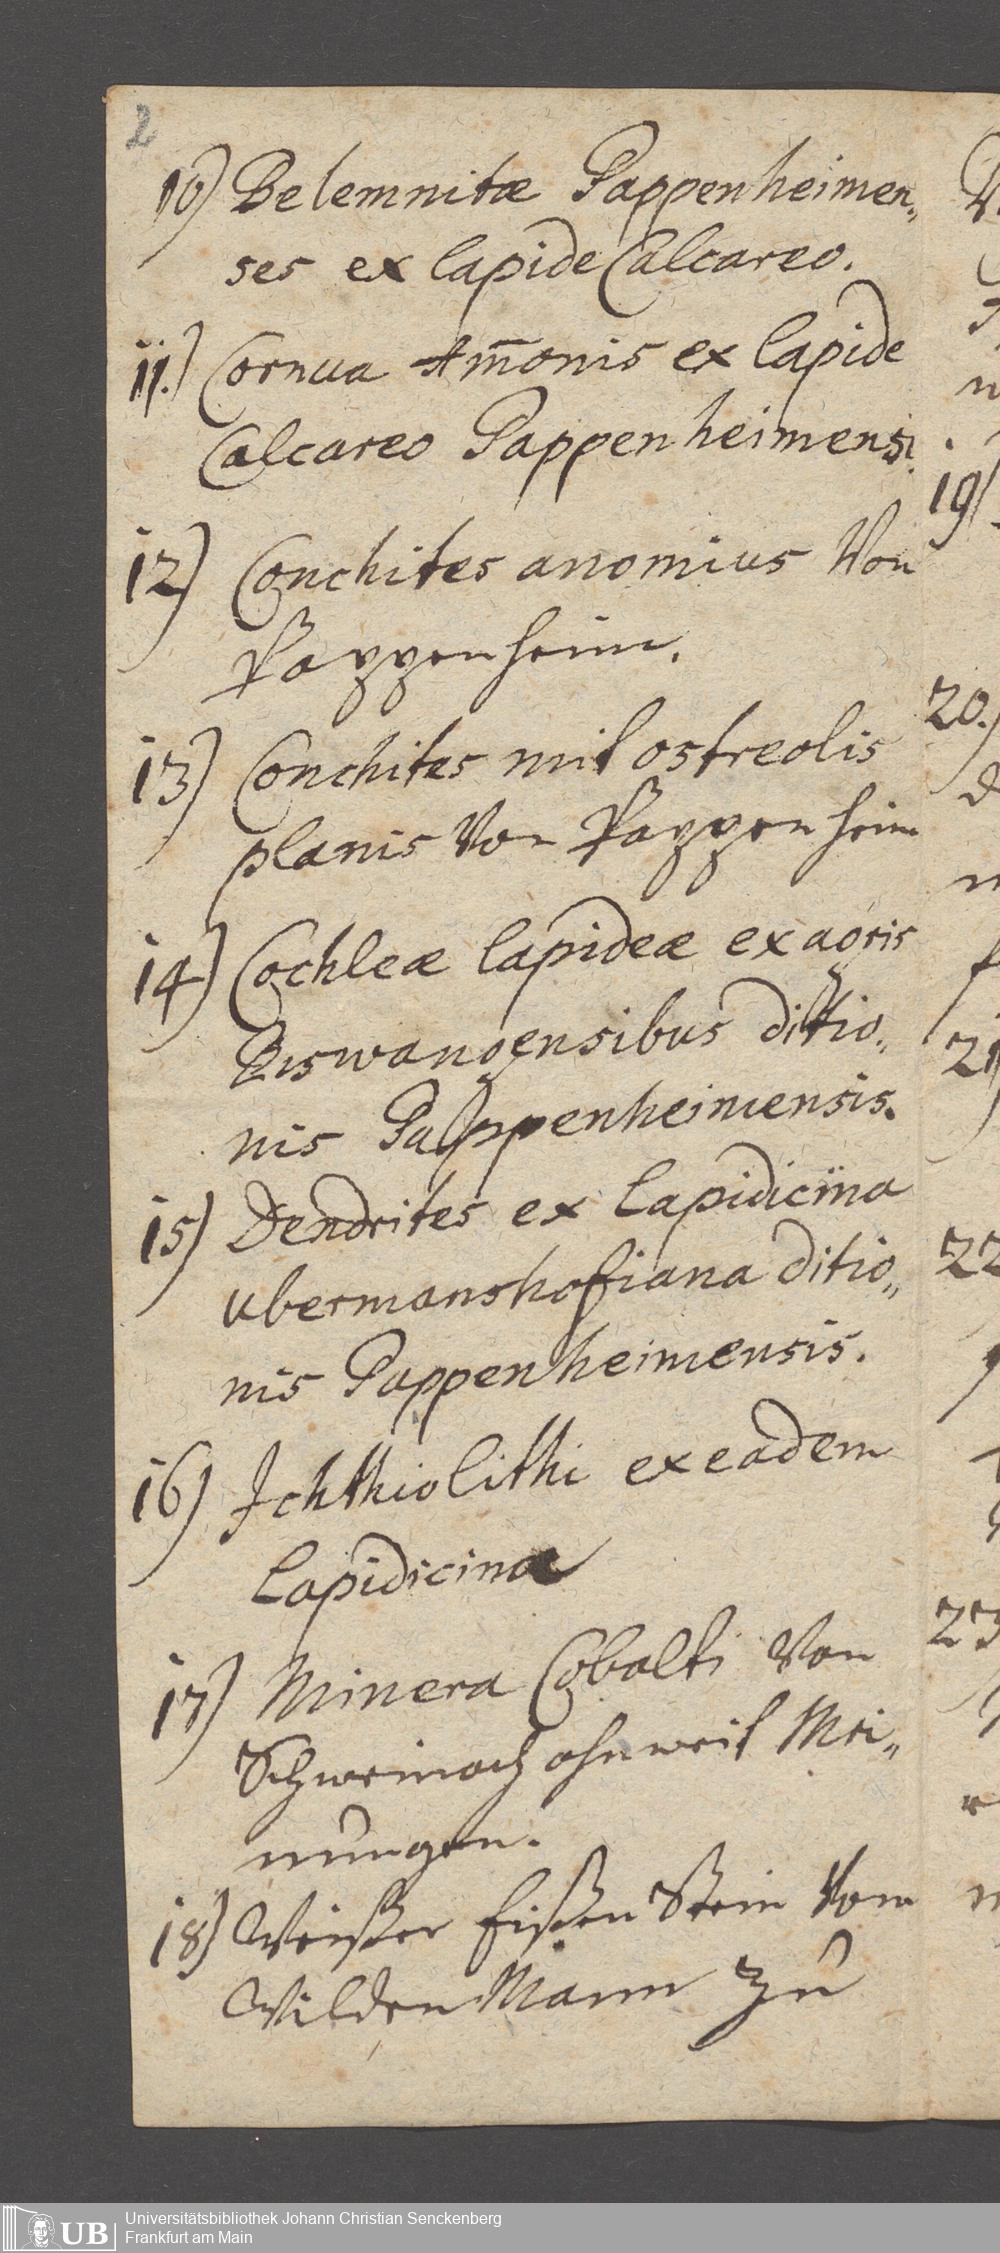 2
10) Belemnitæ Pappenheimen„
ses ex lapide Calcareo.
11.) Cornua Am̄onis ex lapide
Calcareo Pappenheimensi.
12) Conchites anomius Von
Pappenheim.
13) Conchites mit ostreolis
planis Von Pappenheim
14) Cochleæ lapideæ ex agris
Biswangensibus ditio„
nis Pappenheimensis.
15) Dendrites ex lapidicina
ubermanshofiana ditio„
nis Pappenheimensis.
16) Ichthiolithi ex eadem
lapidicina
17) Minera Cobalti Von
Schweinach ohnweit Mei„
nungen.
18) Weißer Eißen Stein Vom
Wilden Mann zu
19)
20.)
21)
22
23
UB Universitätsbibliothek Johann Christian Senckenberg
Frankfurt am Main